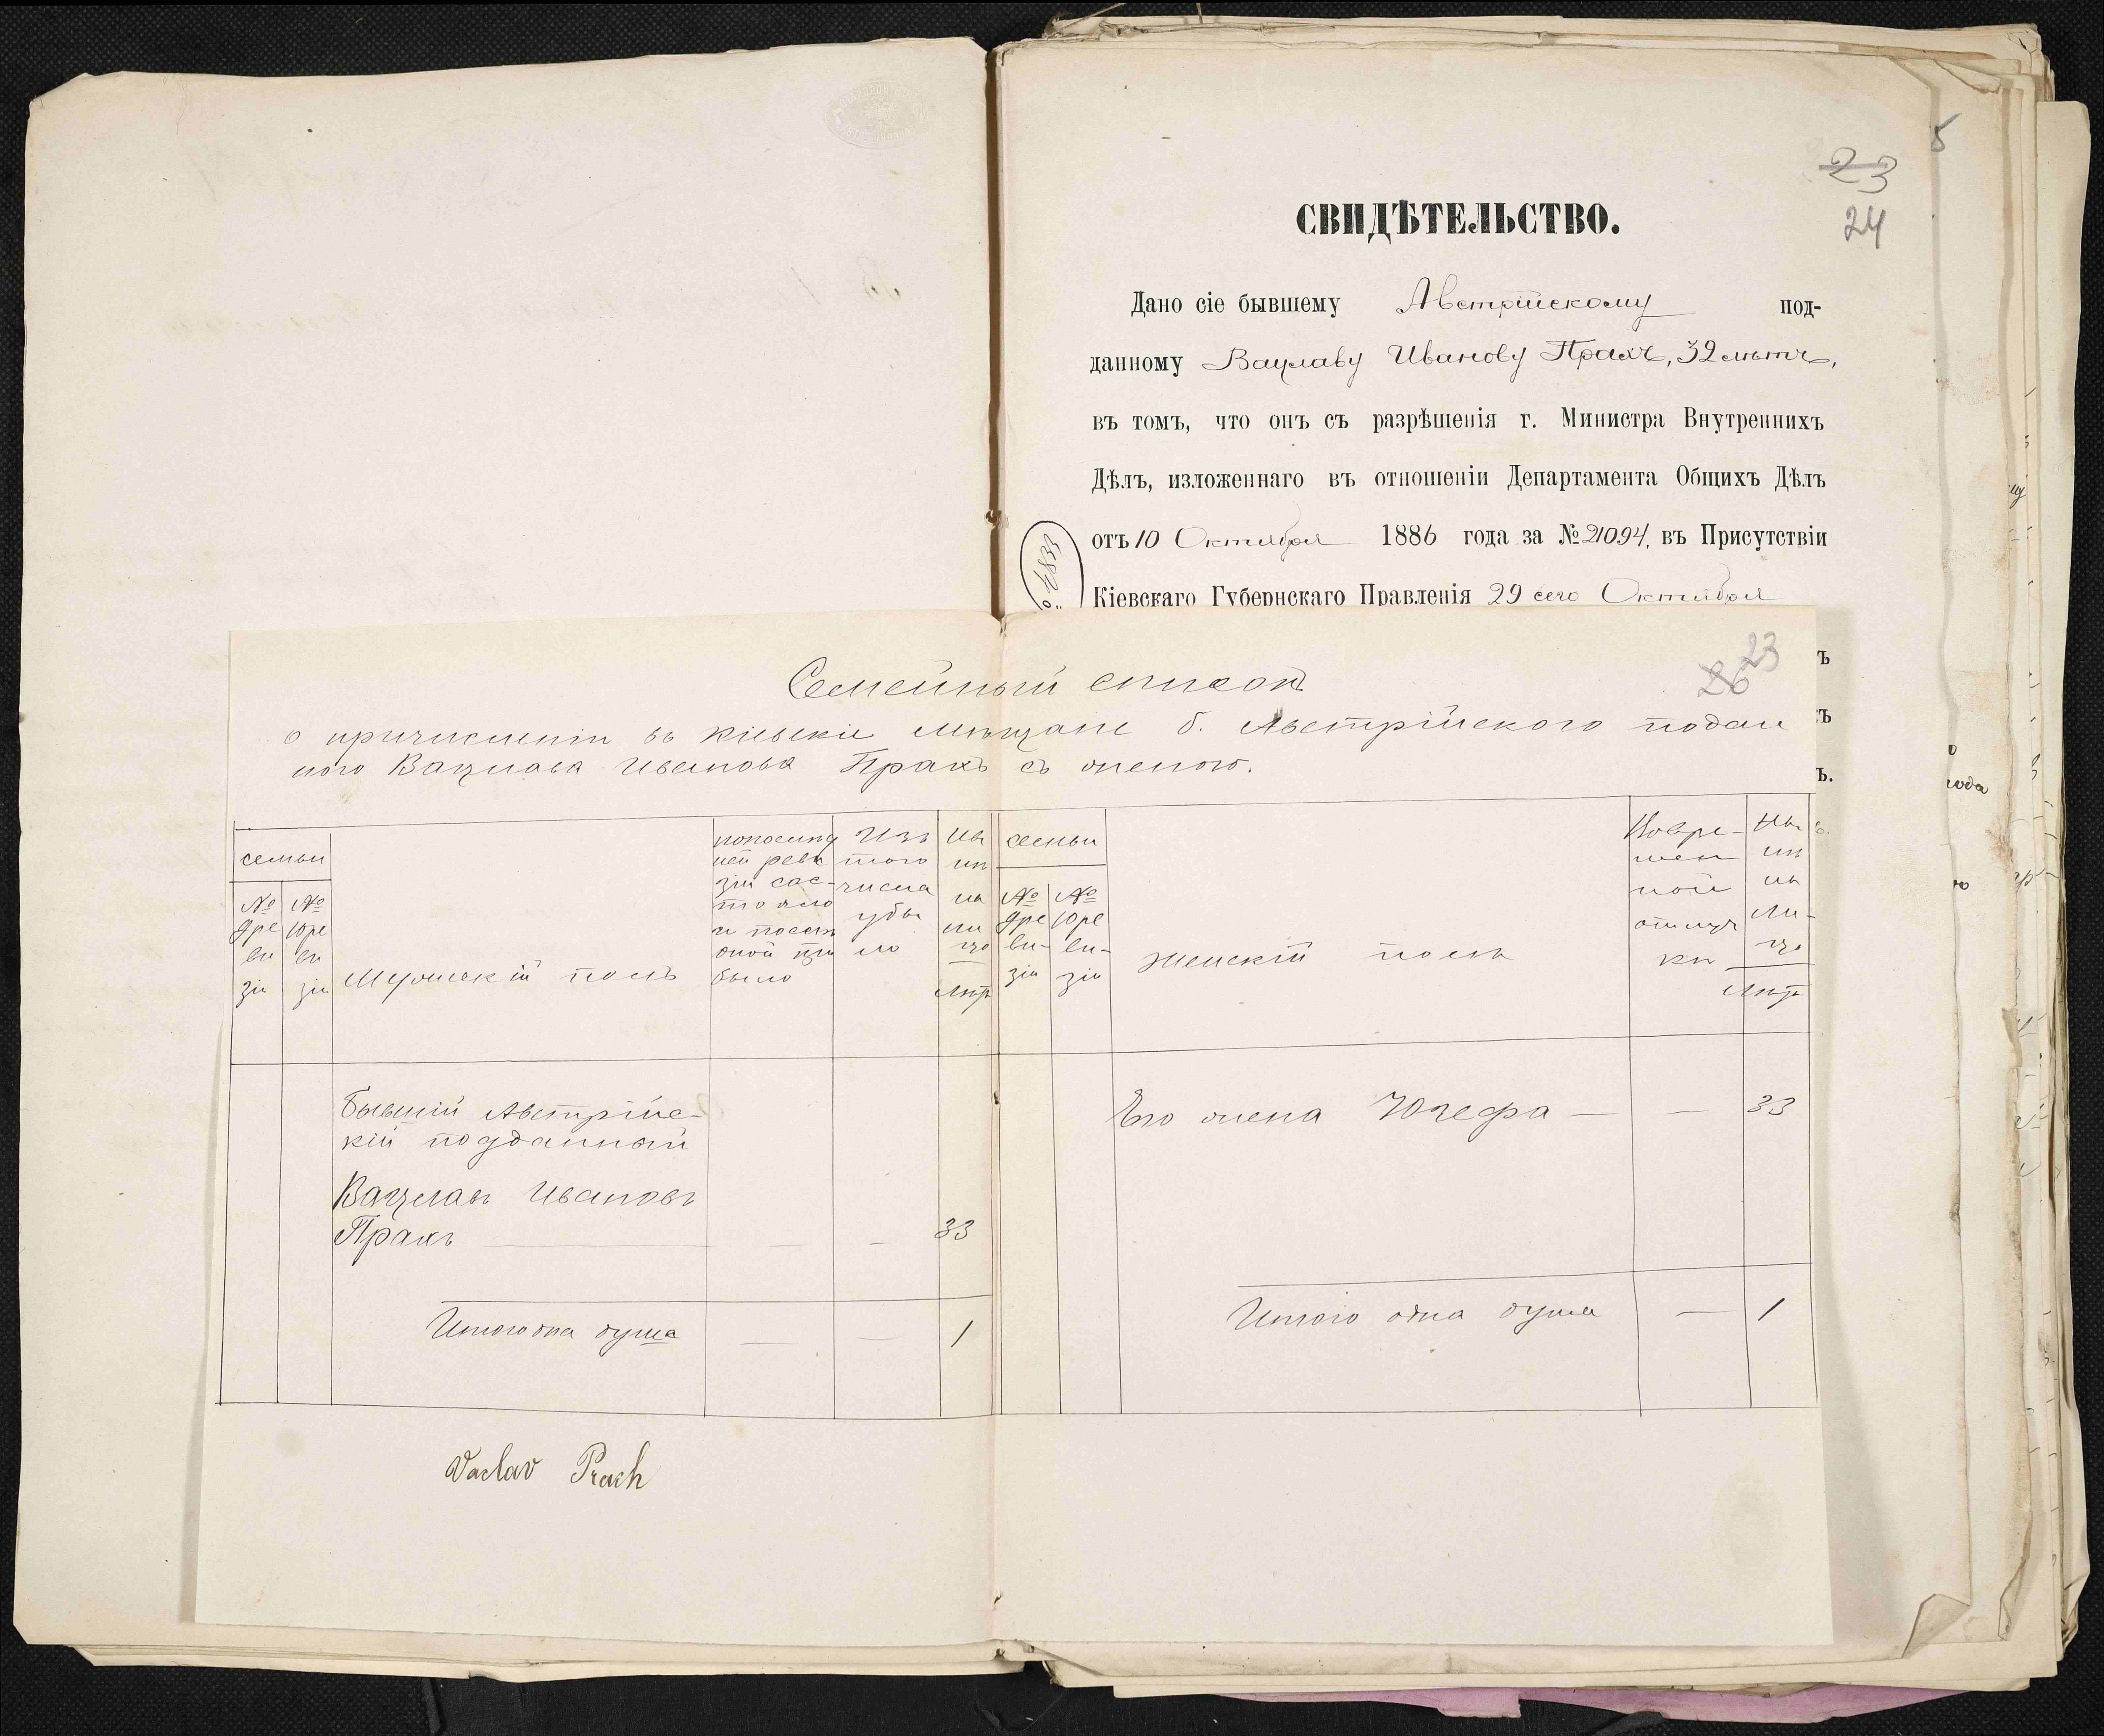 5
23
24
СВИДѢТЕЛЬСТВО.
Дано сіе бывшему Австрійскому под-
данному Вацлаву Иванову Прахъ, 32 лѣтъ,
въ томъ, что онъ съ разрѣшенія г. Министра Внутреннихъ
Дѣлъ, изложеннаго въ отношеніи Департамента Общихъ Дѣлъ
отъ 10 Октября 1886 года за № 21094, въ Присутствіи
Кіевскаго Губернскаго Правленія 29 сего Октября
23
26
Семейный списокъ
о причисленіи въ кіевскіе мѣщане б. Австрійского подан
ного Вацлава Иванова Прахъ съ женою.
семьи
№ 9 ре ви зіи
№ 10 ре ви зіи
Мужескій полъ
попослед
ней реви
зіи сос-
тояло
и посля
оной при
было
Изъ
того
числа
убы
ло
Ны
нѣ
на
ли
цо
лѣтъ
семьи
№ 9 ре ви- зіи
№ 10 ре ви- зіи
женскій полъ
Вовре-
мен
ной
отлуч
кѣ
Ны
нѣ
на
ли-
цо
Лѣтъ
Бывшій Австрійс-
кій подданный
Вацлавъ Ивановъ
Прахъ — — — 33
Его жена Юзефа — — 33
Итого одна душа — — 1
Итого одна душа — 1
Vaclav Prach
года